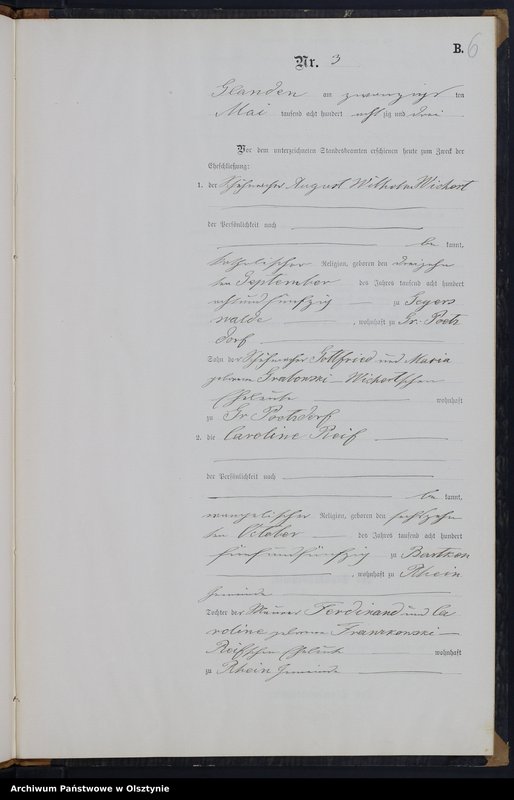 B. 6
Nr. 3
Glanden am zwanzigsten
Mai tausend acht hundert achtzig und drei
Vor dem unterzeichneten Standesbeamten erschienen heute zum Zweck der
Eheschließung:
1. der Schuhmacher August Wilhelm Wichert
der Persönlichkeit nach
be kannt,
katholischer Religion, geboren den dreizehn
ten September des Jahres tausend acht hundert
acht und fünfzig zu Seegers
walde, wohnhaft zu Gr. Poetz
dorf
Sohn der Schuhmacher Gottfried und Maria
geborene Grabowski Wichertschen
Eheleute wohnhaft
zu Gr Poetzdorf
2. die Caroline Reif
der Persönlichkeit nach
be kannt,
evangelischer Religion, geboren den sechszehn
ten October des Jahres tausend acht hundert
fünf und fünfzig zu
, wohnhaft zu Rhein
Gemeinde
Tochter der Maurer Ferdinand und Ca
roline geborene Franzkowski
Reifschen Eheleute wohnhaft
zu Rhein Gemeinde
Archiwum Państwowe w Olsztynie